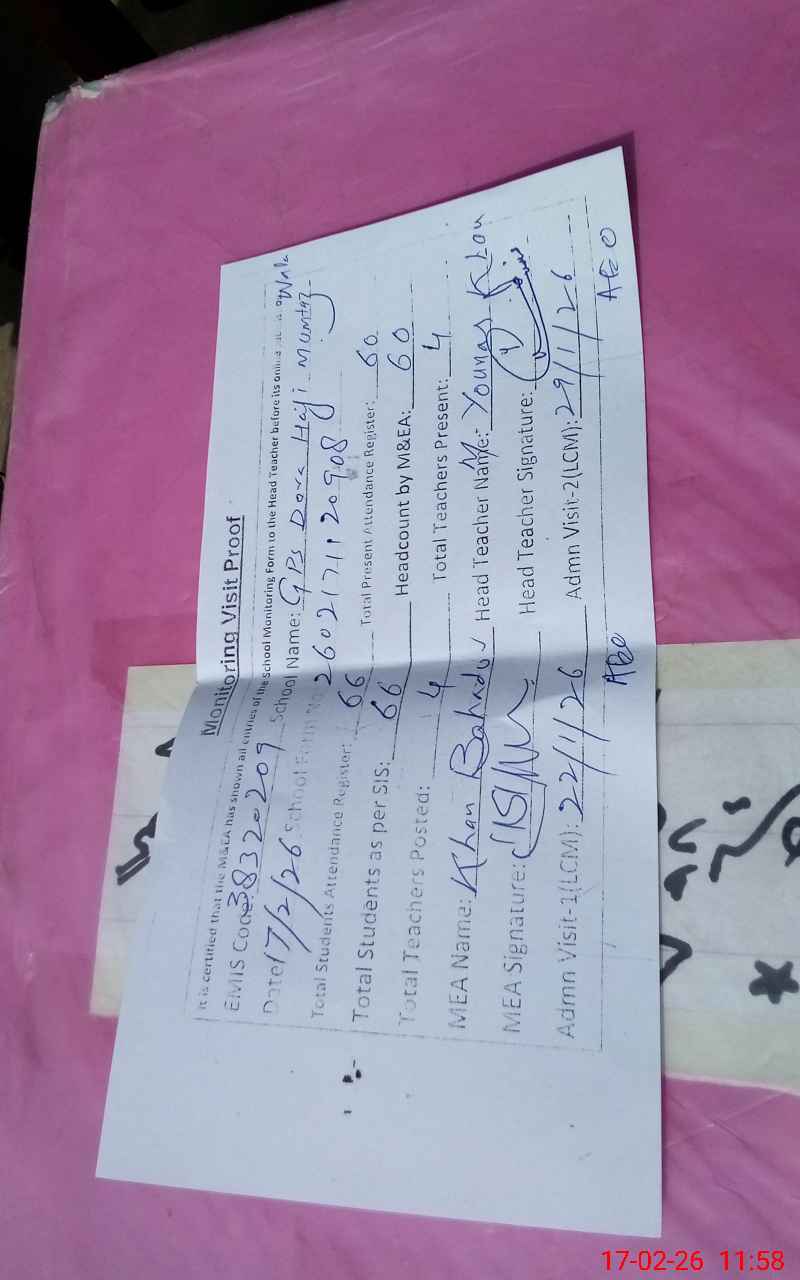 Monitoring Visit Proof
It is certified that the M&EA has shown all entries of the School Monitoring Form to the Head Teacher before its
EMIS Code: 38320209 School Name: GPS Dora Haji Mumtaz Wala
Date 17/2/26 School Form No. 26021711120908
Total Students Attendance Register: 66 Total Present Attendance Register: 60
Total Students as per SIS: 66 Headcount by M&EA: 60
Total Teachers Posted: 4 Total Teachers Present: 4
MEA Name: Khan Bahadur Head Teacher Name: M Younas Khan
MEA Signature: Head Teacher Signature:
Admn Visit-1(LCM): 22/1/26 Admn Visit-2(LCM): 29/1/26
AEO AEO
17-02-26 11:58